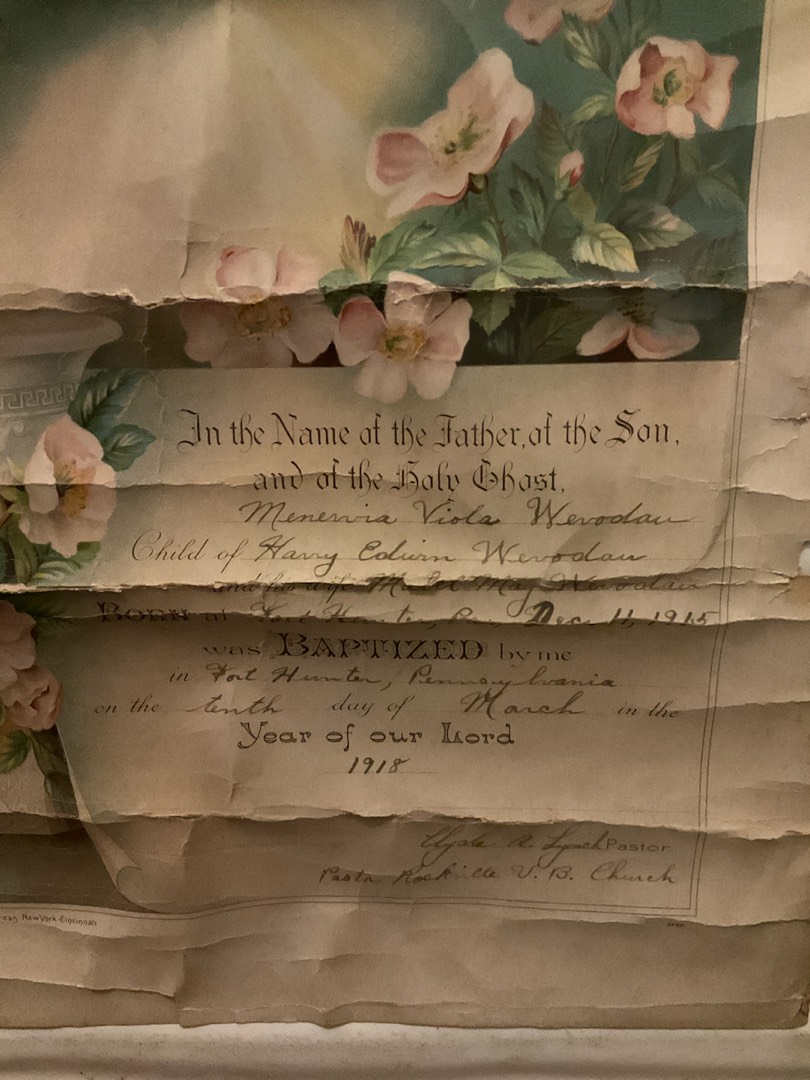 In the Name of the Father, of the Son,
and of the Holy Ghost.
Menervia Viola Wevodau
Child of Harry Edwin Wevodau
and his wife Mabel May Wevodau
BORN at Fort Hunter, Pa., Dec. 11, 1915
was BAPTIZED by me
in Fort Hunter, Pennsylvania
on the tenth day of March in the
Year of our Lord
1918
Clyde A. Lynch Pastor
Pastor Rockville U. B. Church
New York-Cincinnati